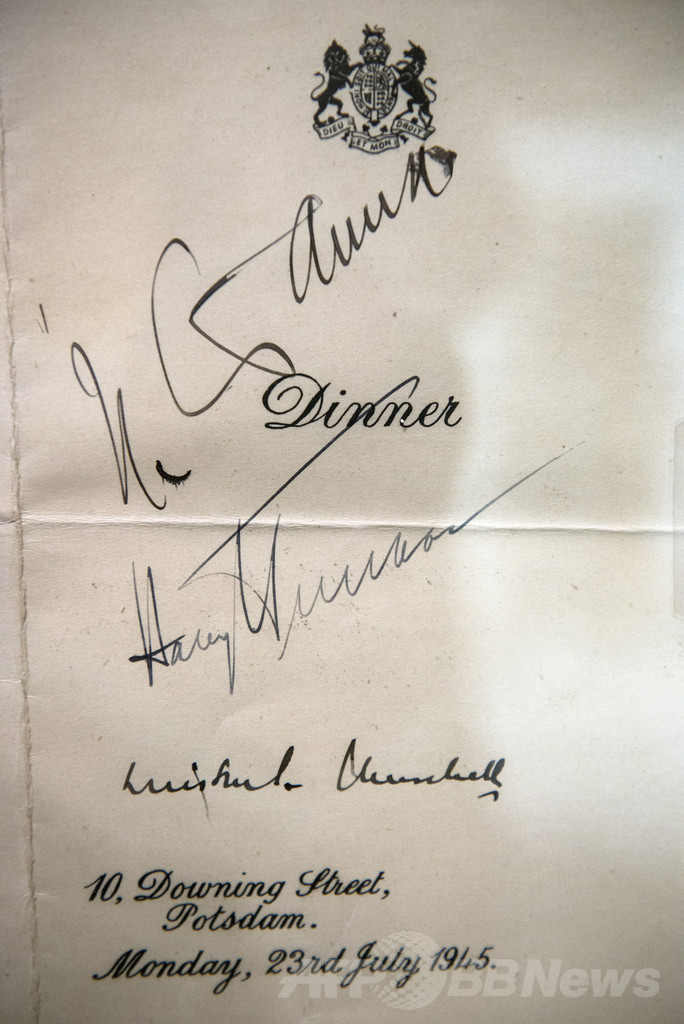 DIEU ET MON DROIT
И. Сталин
Dinner
Harry Truman
Winston S. Churchill
10, Downing Street,
Potsdam.
Monday, 23rd July, 1945.
AFPBBNews